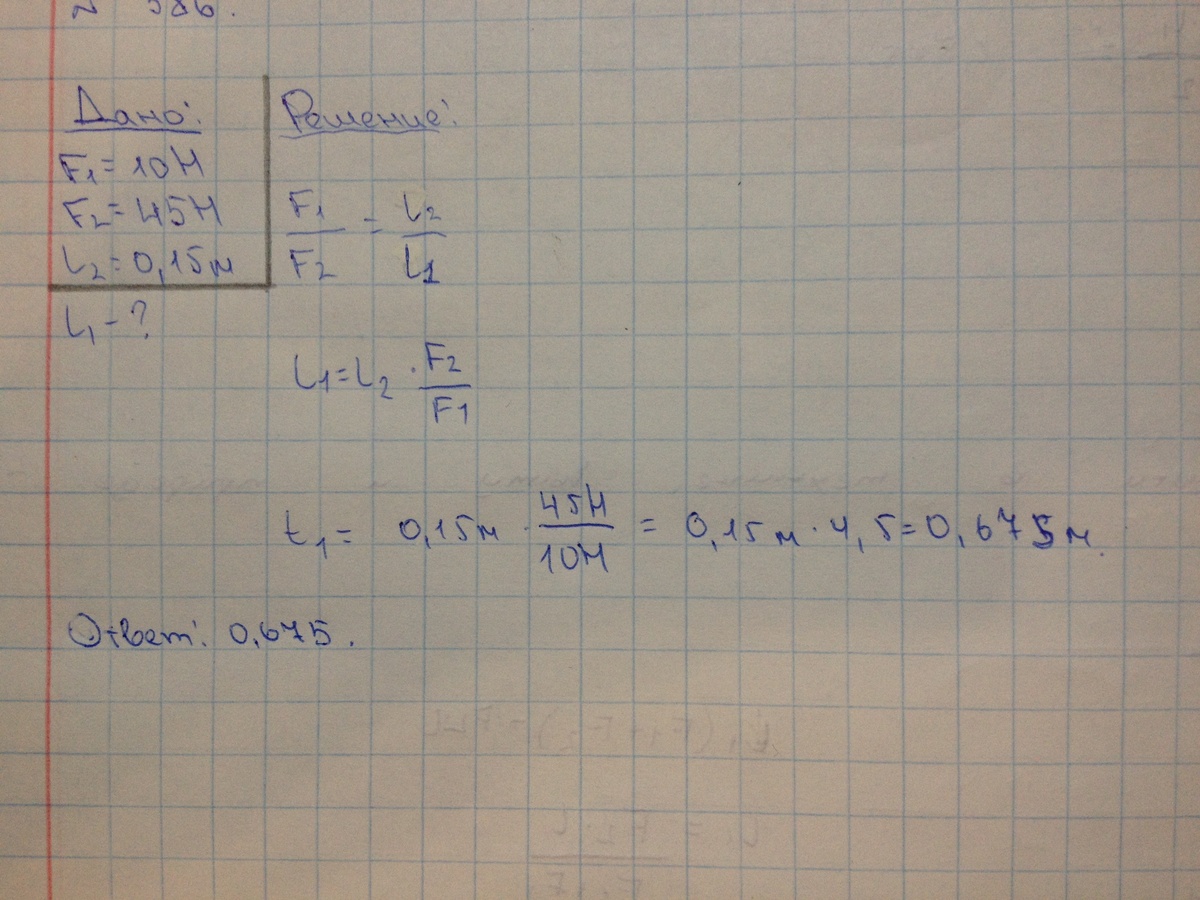 Дано:
F1 = 10Н
F2 = 45Н
L2 = 0,15м
L1 - ?
Решение:
F1/F2 = L2/L1
L1 = L2 · F2/F1
t1 = 0,15м · 45Н/10Н = 0,15м · 4,5 = 0,675м.
Ответ: 0,675.